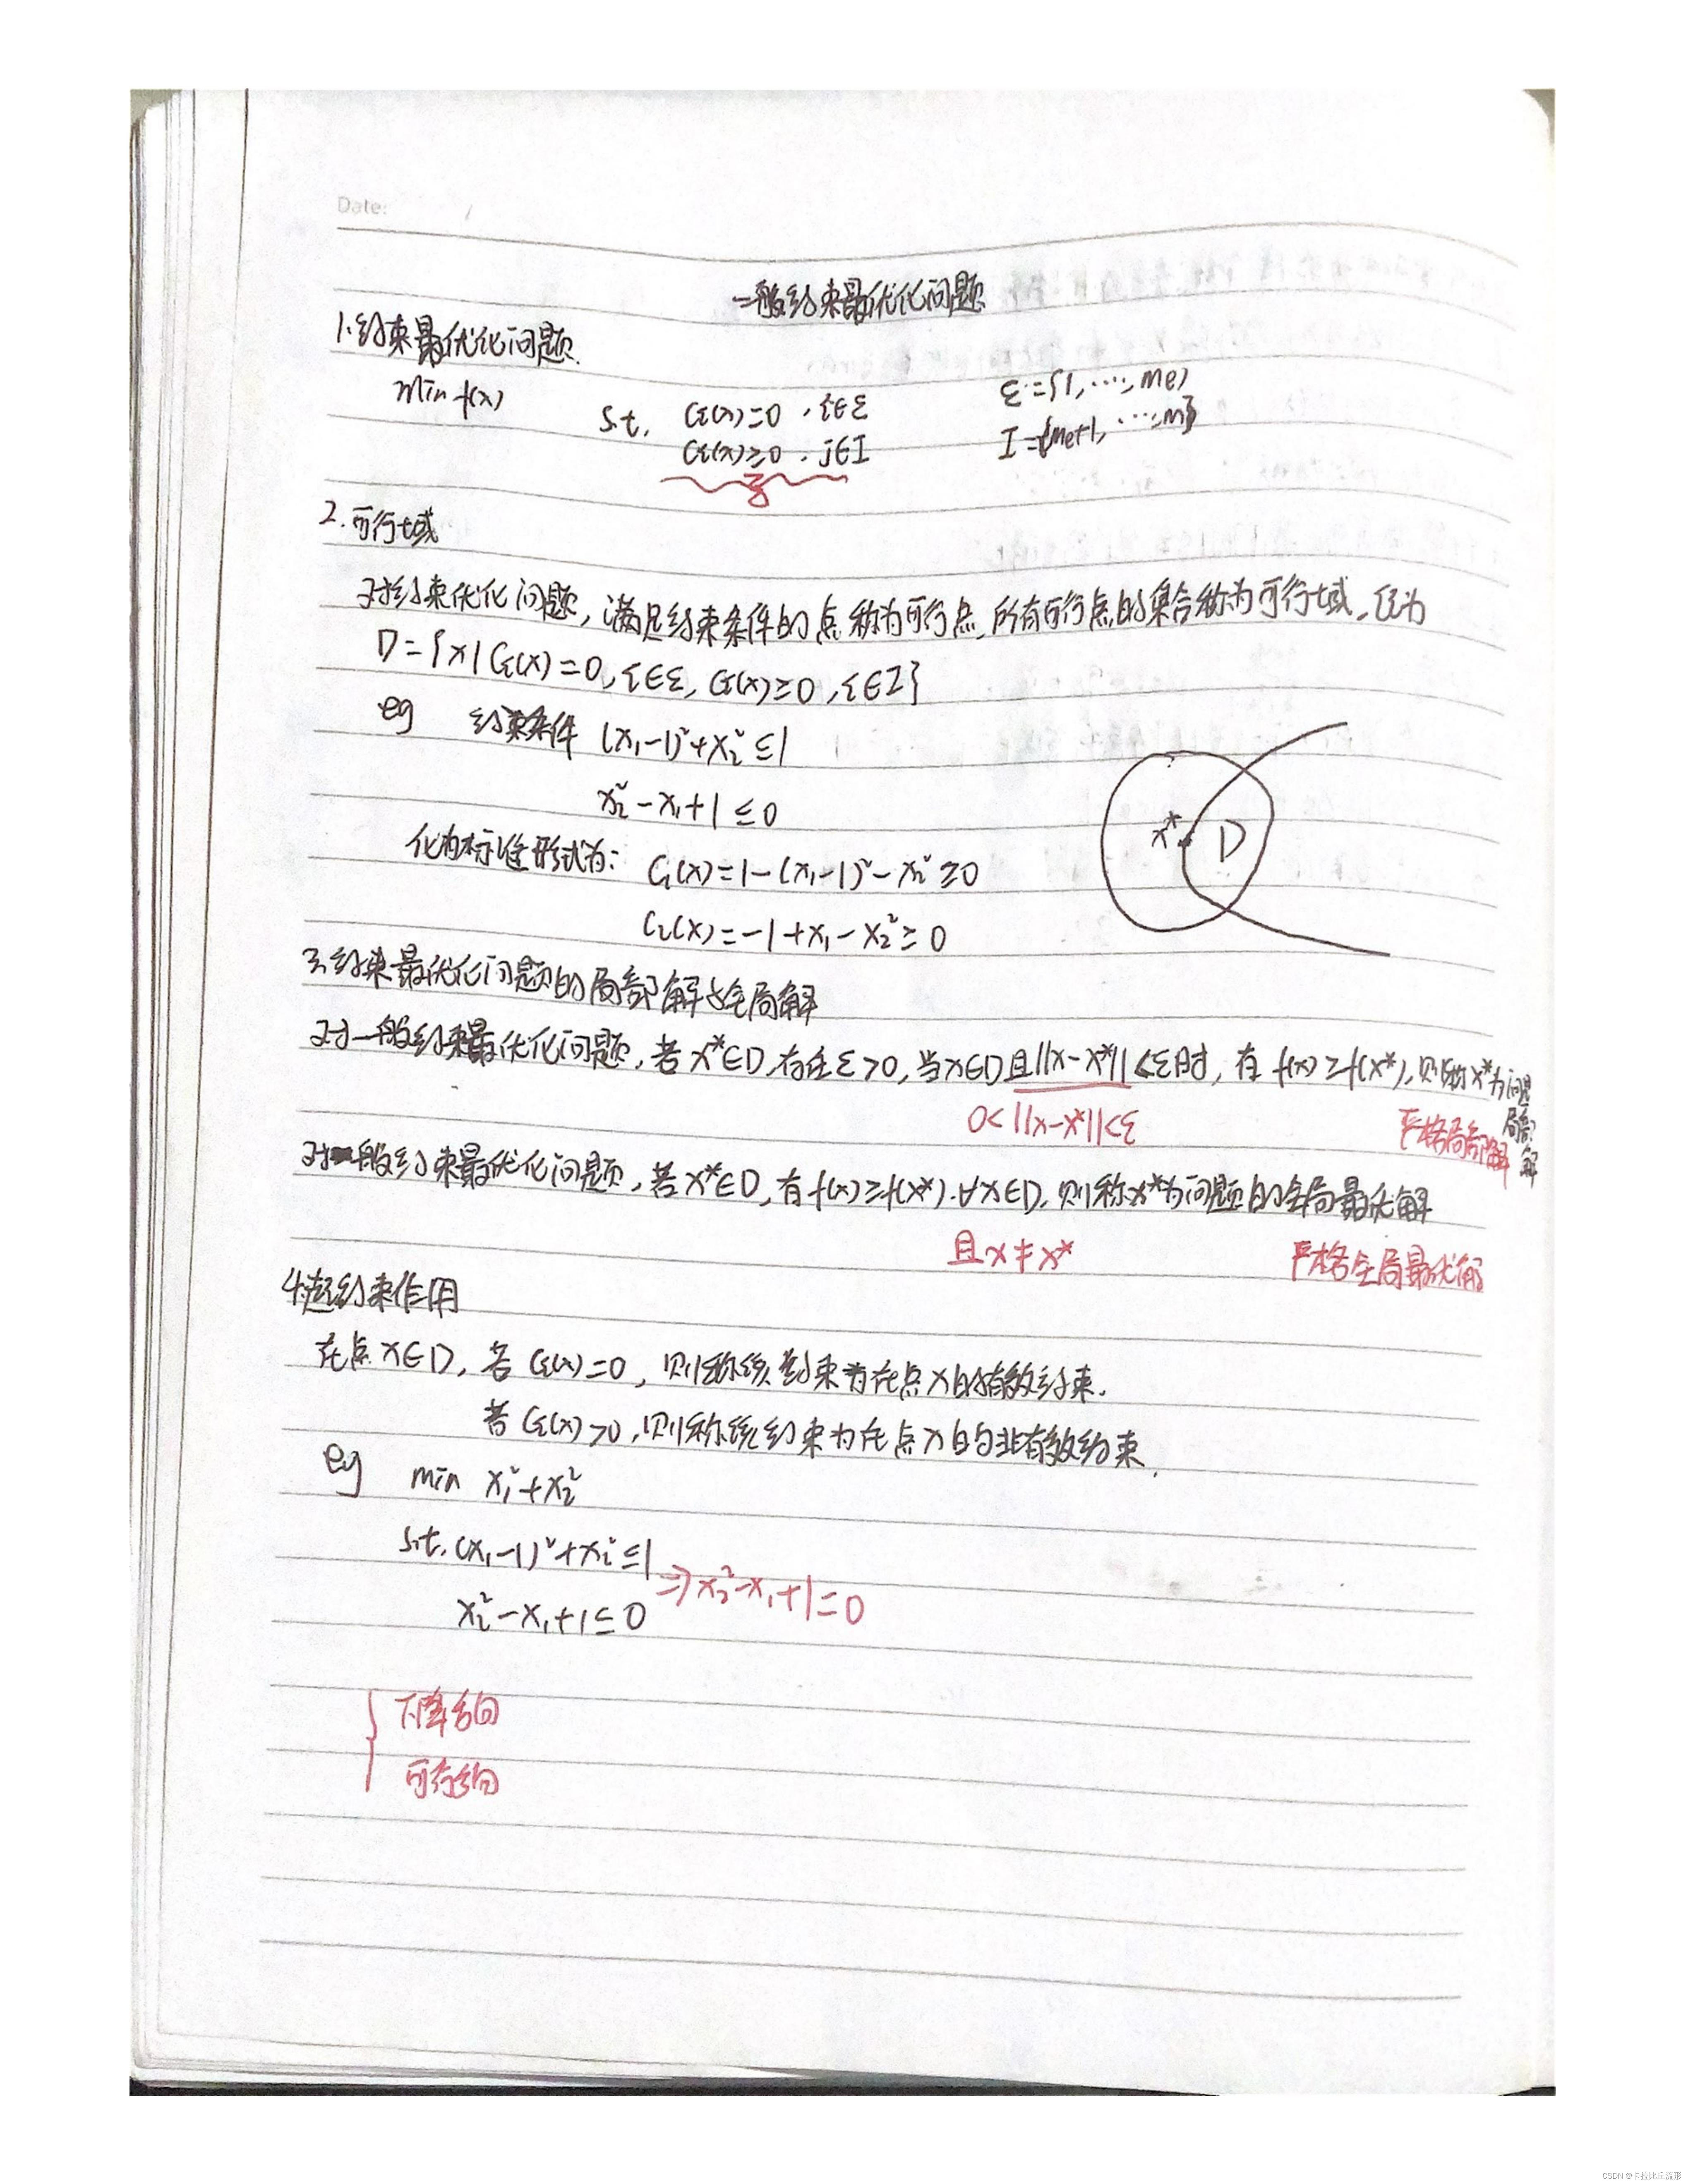 Date:
一般约束最优化问题
1.约束最优化问题.
min f(x)
s.t. Ci(x)=0,i∈ε ε={1,…,me}
Ci(x)≥0,j∈I I={me+1,…,m}
2.可行域
对约束优化问题,满足约束条件的点称为可行点,所有可行点的集合称为可行域,记为
D={x|Ci(x)=0,i∈ε,Ci(x)≥0,i∈I}
eg 约束条件 (x₁-1)²+x₂²≤1
x₂²-x₁+1≤0
x* D
化为标准形式为: C₁(x)=1-(x₁-1)²-x₂²≥0
C₂(x)=-1+x₁-x₂²≥0
3.约束最优化问题的局部解与全局解
对一般约束最优化问题,若x*∈D,存在ε>0,当x∈D且||x-x*||<ε时,有f(x)≥f(x*),则称x*为问题
局部解
0<||x-x*||<ε 严格局部解
对一般约束最优化问题,若x*∈D,有f(x)≥f(x*),∀x∈D,则称x*为问题的全局最优解
且x≠x* 严格全局最优解
4.起约束作用
在点x∈D,若Ci(x)=0,则称该约束为在点x的有效约束.
若Ci(x)>0,则称该约束为在点x的非有效约束.
eg min x₁²+x₂²
s.t. (x₁-1)²+x₂²≤1
x₂²-x₁+1≤0 ⇒x₂²-x₁+1=0
下降方向
可行方向
CSDN @卡拉比丘流形